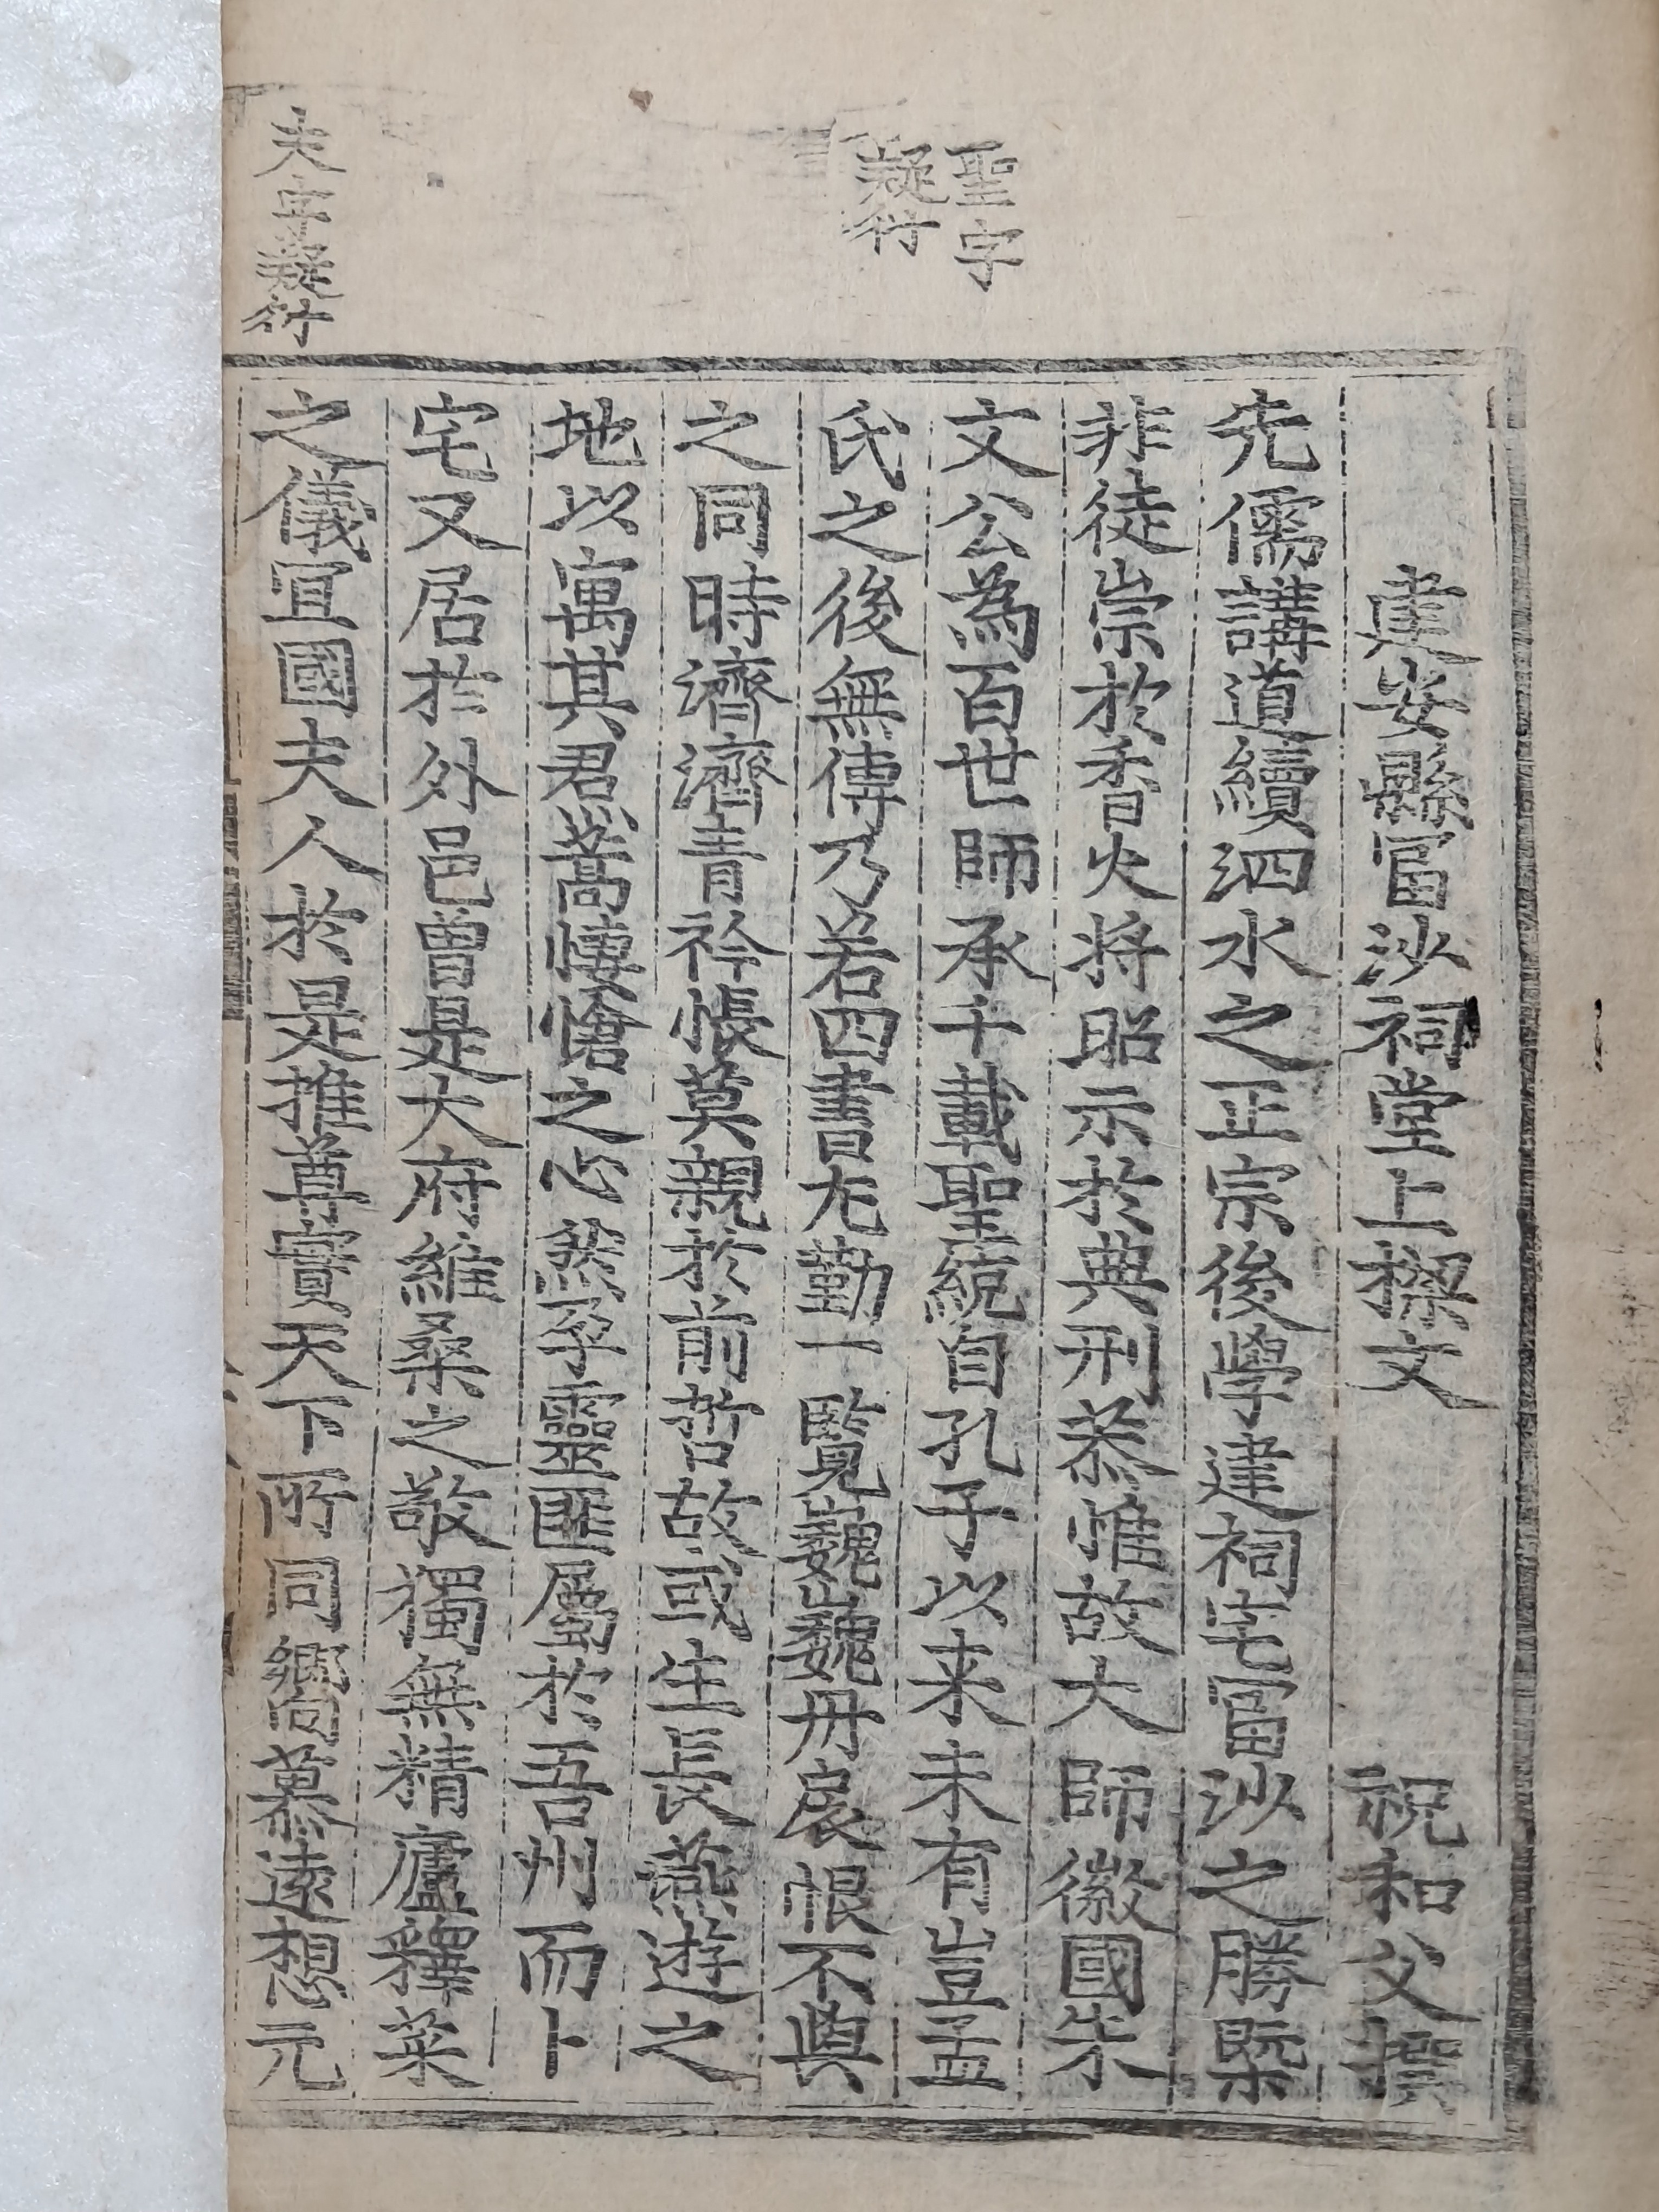 建安縣富沙祠堂上樑文 祝和父
先儒講道續泗水之正宗後學建祠宇富沙之勝槩
非徒崇於香火將昭示於典刑恭惟故太師徽國朱
文公為百世師承千載聖統自孔子以来未有豈孟
氏之後無傳乃若四書尤勤一覽巍巍丹扆恨不與
之同時濟濟青衿悵莫親於前哲故同年長燕遊之
地以寓其君蒿悽愴之心然屬於吾州而卜
宅又居於外邑曽是大府維桑之敬獨無精廬釋菜
之儀宜國夫人於是天下所司建元
聖字
疑行
夫字疑行